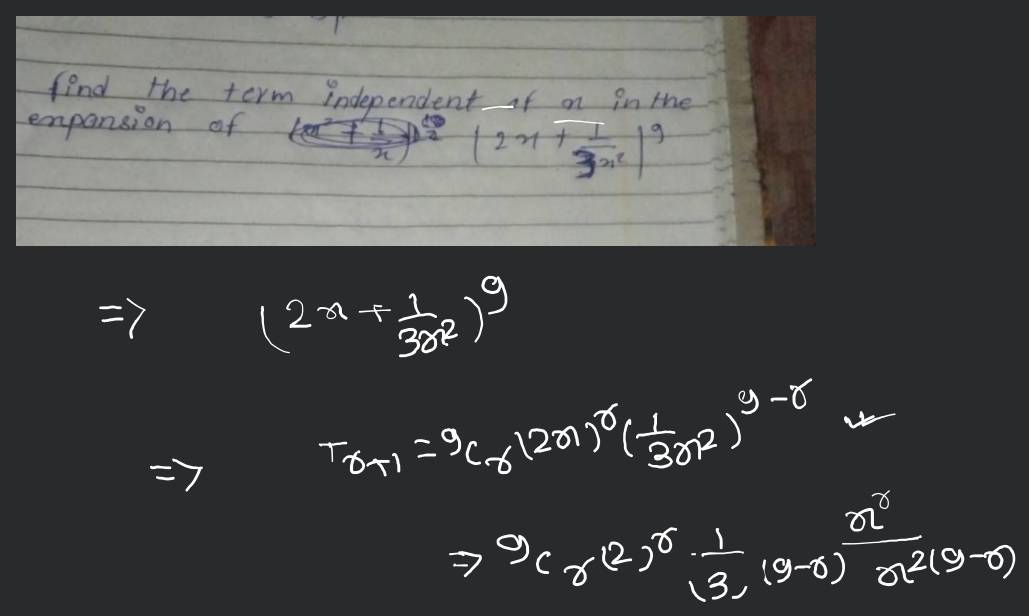 find the term independent of x in the
expansion of (2x + 1/3x²)^9
=> (2x + 1/3x²)^9
=> T_{r+1} = 9C_r (2x)^r (1/3x²)^{9-r}
=> 9C_r (2)^r · 1/(3)^(9-r) x^r/x^2(9-r)